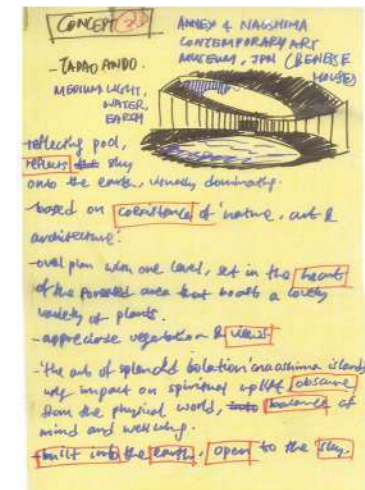 CONCEPT
ANNEX & NAOSHIMA
CONTEMPORARY ART
MUSEUM, JPN (BENESE
HOUSE)
- TADAO ANDO.
MEDIUM LIGHT,
WATER,
EARTH
- reflecting pool,
reflects sky
onto the earth, visually dominating.
- based on coexistence of 'nature, art &
architecture'.
- oval plan with one level, set in the heart
of the forested area that boasts a lovely
variety of plants.
- appreciate vegetation & views
- 'the art of splendid isolation' naoshima island
impact on spiritual uplift obscure
from the physical world, balance of
mind and well being.
- built into the earth, open to the sky.